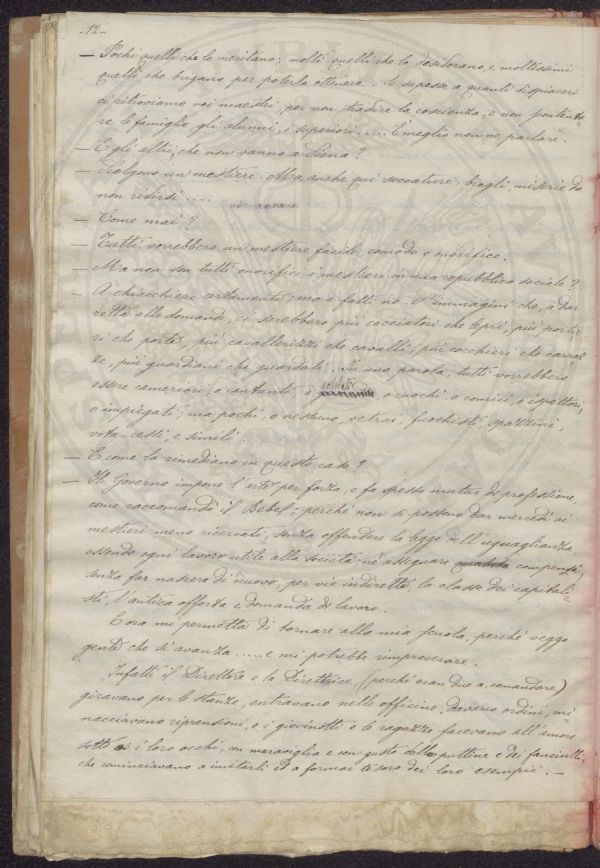 -12-
— Pochi quelli che lo meritano; molti quelli che lo desiderano, e moltissimi
quelli che brigano per poterlo ottenere. Se sapesse a quanti dispiaceri
ci ritroviamo noi maestri, per non tradire la coscienza, e non contenta-
re le famiglie, gli alunni, i superiori..... È meglio non ne parlare.
— E gli altri, che non vanno a Siena?
— Scelgono un mestiere. Ma anche qui seccature, brogli, miserie da
non ridirsi....
— Come mai?
— Tutti vorrebbero un mestiere facile, comodo e onorifico.
— Ma non son tutti onorifici i mestieri in una repubblica sociale?
— A chiacchiere certamente; ma a fatti no. S'immagini che, a dar
retta alle domande, ci sarebbero più cacciatori che lepri, più portie-
ri che porte, più cavallerizzi che cavalli, più cocchieri che carroz-
ze, più guardiani che guardati. In una parola, tutti vorrebbero
essere camerieri, o cantanti, o soldati, o cuochi, o comici, o ispettori,
o impiegati; ma pochi, o nessuno, vetrai, fuochisti, spazzini,
vota-cessi, e simili.
— E come la rimediano in questo caso?
— Il Governo impone l'arte per forza, e fa spesso mutar di professione,
come raccomanda il Bebel; perché non si possono dar mercedi ai
mestieri meno ricercati, senza offendere la legge dell'uguaglianza,
essendo ogni lavoro utile alla società; né assegnare compensi,
senza far nascere di nuovo, per vie indirette, la classe dei capitali-
sti, l'antica offerta e domanda di lavoro.
E ora mi permetta di tornare alla mia scuola, perché veggo
gente che si avanza..... e mi potrebbe rimproverare.
Infatti il Direttore e la Direttrice, (perché eran due a comandare)
giravano per le stanze, entravano nelle officine, davano ordini, mi-
nacciavano riprensioni, e i giovinotti e le ragazze facevano all'amore
sotto i loro occhi, con maraviglia e con gusto delle puttine e dei fanciulli,
che cominciavano a imitarli ed a formar tesoro dei loro esempii. —